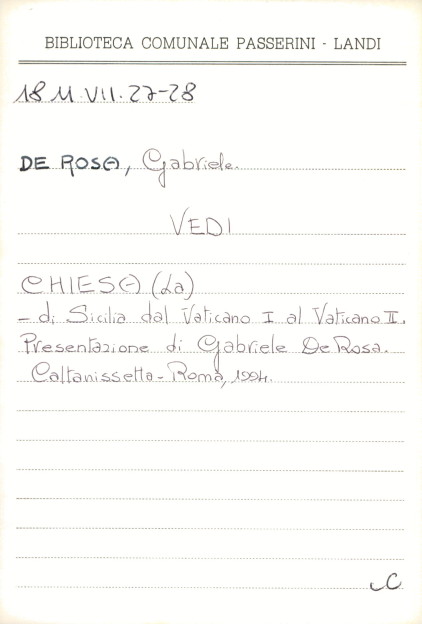 BIBLIOTECA COMUNALE PASSERINI - LANDI
18 M. VII. 27-28
DE ROSA, Gabriele.
VEDI
CHIESA (La)
- di Sicilia dal Vaticano I al Vaticano II.
Presentazione di Gabriele De Rosa.
Caltanissetta - Roma, 1994.